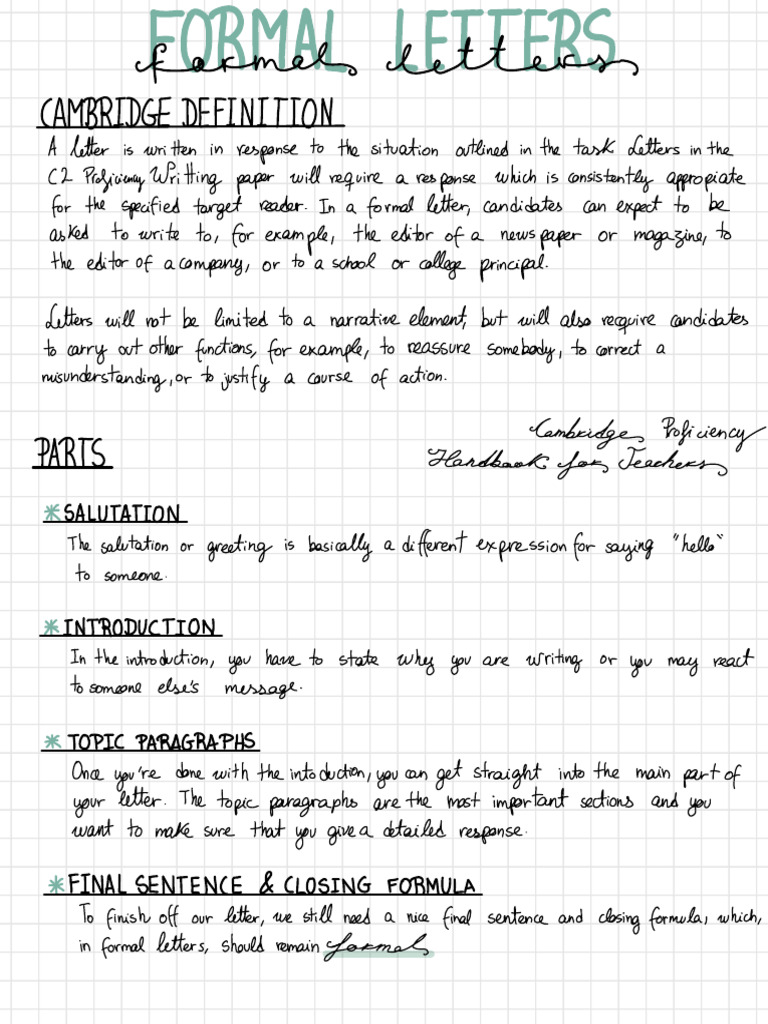 FORMAL LETTERS
formal letters
CAMBRIDGE DEFINITION
A letter is written in response to the situation outlined in the task. Letters in the
C2 Proficiency Writing paper will require a response which is consistently appropiate
for the specified target reader. In a formal letter, candidates can expect to be
asked to write to, for example, the editor of a newspaper or magazine, to
the editor of a company, or to a school or college principal.
Letters will not be limited to a narrative element, but will also require candidates
to carry out other functions, for example, to reassure somebody, to correct a
misunderstanding, or to justify a course of action.
Cambridge Proficiency
Handbook for Teachers
PARTS
* SALUTATION
The salutation or greeting is basically a different expression for saying "hello"
to someone.
* INTRODUCTION
In the introduction, you have to state why you are writing or you may react
to someone else's message.
* TOPIC PARAGRAPHS
Once you're done with the intoduction, you can get straight into the main part of
your letter. The topic paragraphs are the most important sections and you
want to make sure that you give a detailed response.
* FINAL SENTENCE & CLOSING FORMULA
To finish off our letter, we still need a nice final sentence and closing formula, which,
in formal letters, should remain formal